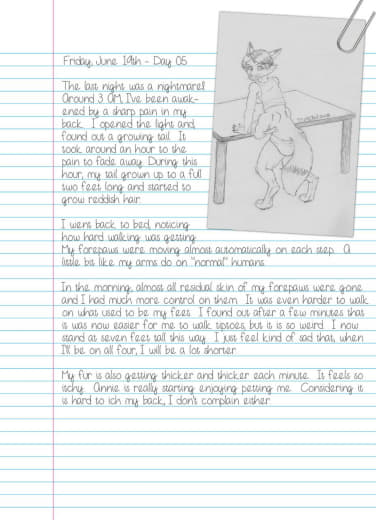 Friday, June 19th - Day 05
The last night was a nightmare!
Around 3 AM, I've been awak-
ened by a sharp pain in my
back. I opened the light and
found out a growing tail. It
took around an hour to the
pain to fade away. During this
hour, my tail grown up to a full
two feet long and started to
grow reddish hair.
I went back to bed, noticing
how hard walking was getting.
My forepaws were moving almost automatically on each step. A
little bit like my arms do on "normal" humans.
In the morning, almost all residual skin of my forepaws were gone
and I had much more control on them. It was even harder to walk
on what used to be my feet. I found out after a few minutes that
it was now easier for me to walk tiptoes, but it is so weird. I now
stand at seven feet tall this way. I just feel kind of sad that, when
I'll be on all four, I will be a lot shorter.
My fur is also getting thicker and thicker each minute. It feels so
itchy. Annie is really starting enjoying petting me. Considering it
is hard to ich my back, I don't complain either.